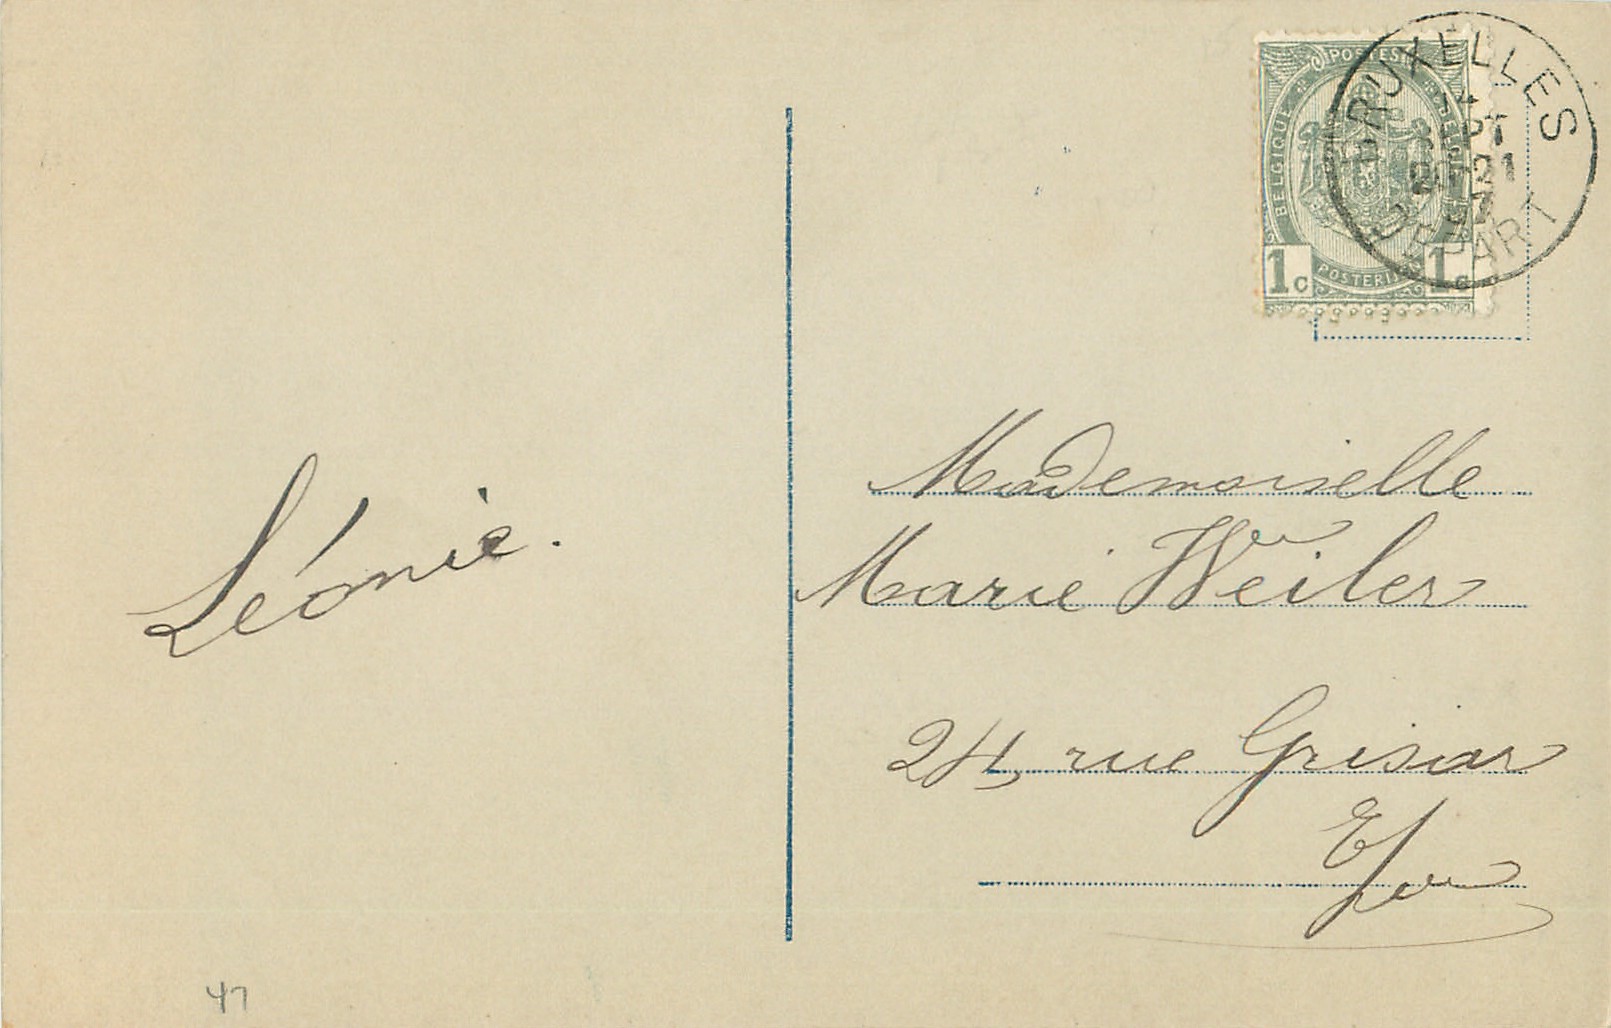 POSTES
BELGIQUE
BELGIË
POSTERIJEN
1c 1c
BRUXELLES
DEPART
Léonie.
Mademoiselle
Marie Weiler
24, rue Grisar
E/v
47